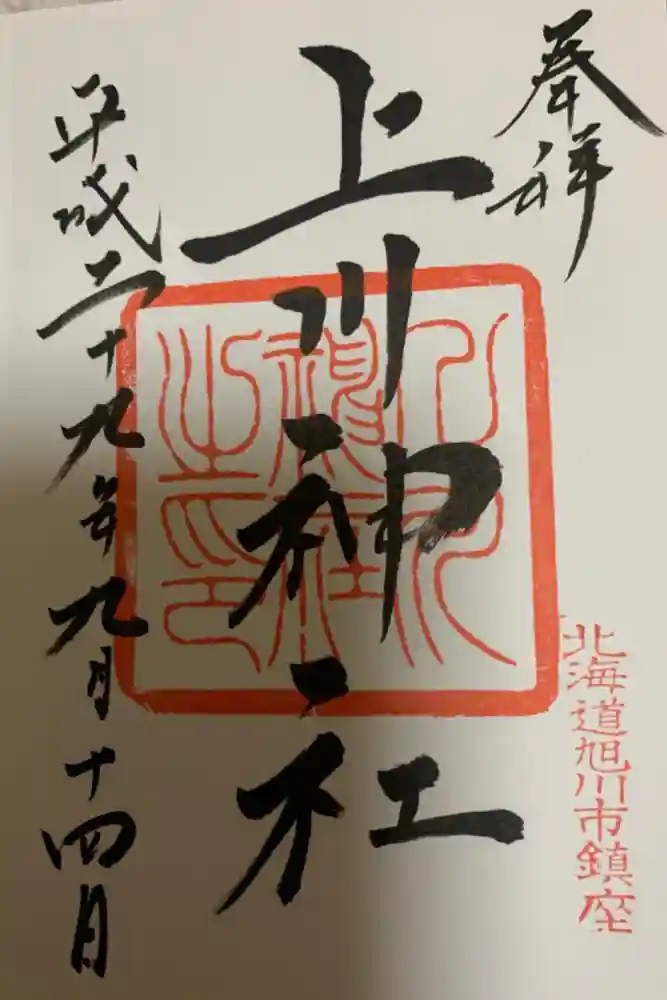 奉拝
北海道旭川市鎮座
上川神社
上川
神社
之印
平成二十九年九月十四日